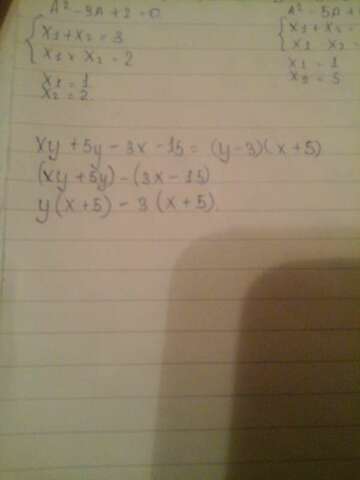 A² - 3A + 2 = 0
x1 + x2 = 3
x1 × x2 = 2
x1 = 1
x2 = 2.
A² - 5A +
x1 + x2 =
x1 x2
x1 = 1
x2 = 5
xy + 5y - 3x - 15 = (y - 3)(x + 5)
(xy + 5y) - (3x - 15)
y(x + 5) - 3(x + 5).